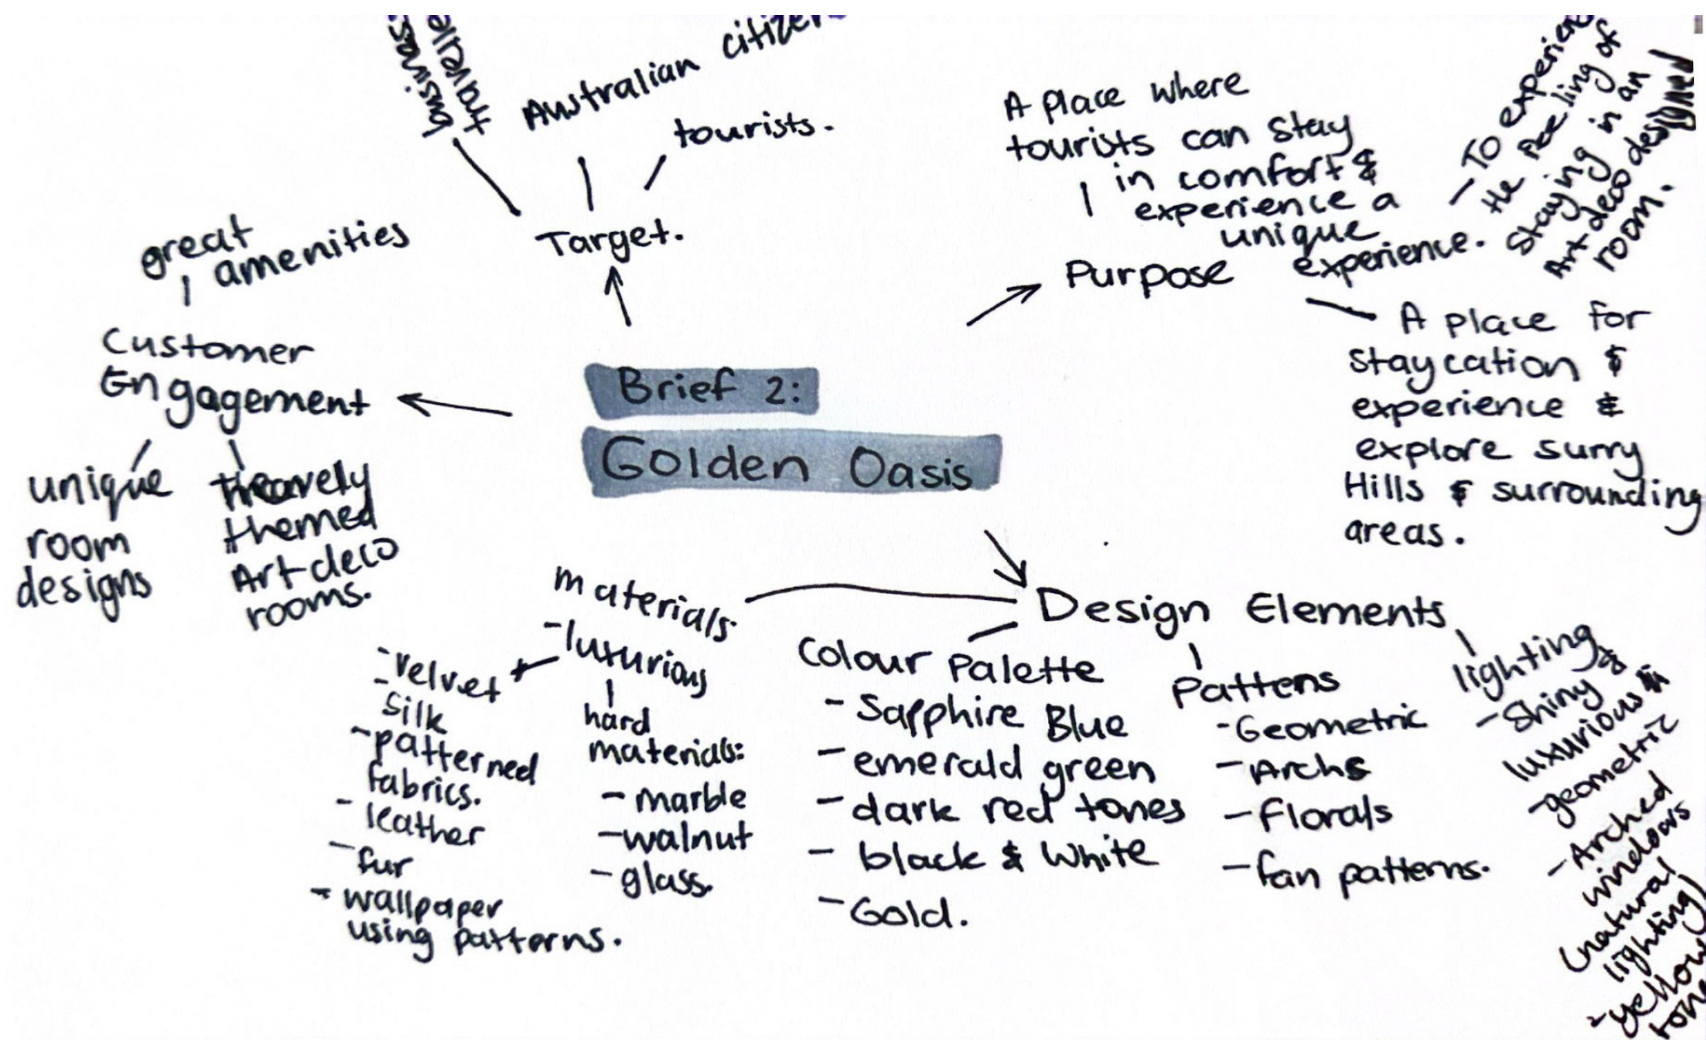 Brief 2:
Golden Oasis
Target.
business
travelle
Australian citizen
tourists.
Purpose
A place where
tourists can stay
in comfort &
experience a
unique
experience.
- To experienc
the feeling of
staying in an
Art deco designed
room.
A place for
staycation &
experience &
explore surry
Hills & surrounding
areas.
Customer
Engagement
great
amenities
unique
room
designs
heavely
themed
Art deco
rooms.
Design Elements
materials.
- luxurious
- velvet
- silk
- patterned
fabrics.
- leather
- fur
- wallpaper
using patterns.
hard
materials:
- marble
- walnut
- glass.
Colour Palette
- Sapphire Blue
- emerald green
- dark red tones
- black & white
- Gold.
Pattens
- Geometric
- Archs
- Florals
- fan patterns.
lighting
- Shiny &
luxurious
- geometric
- Arched
windows
(natural
lighting)
- yellow
tone